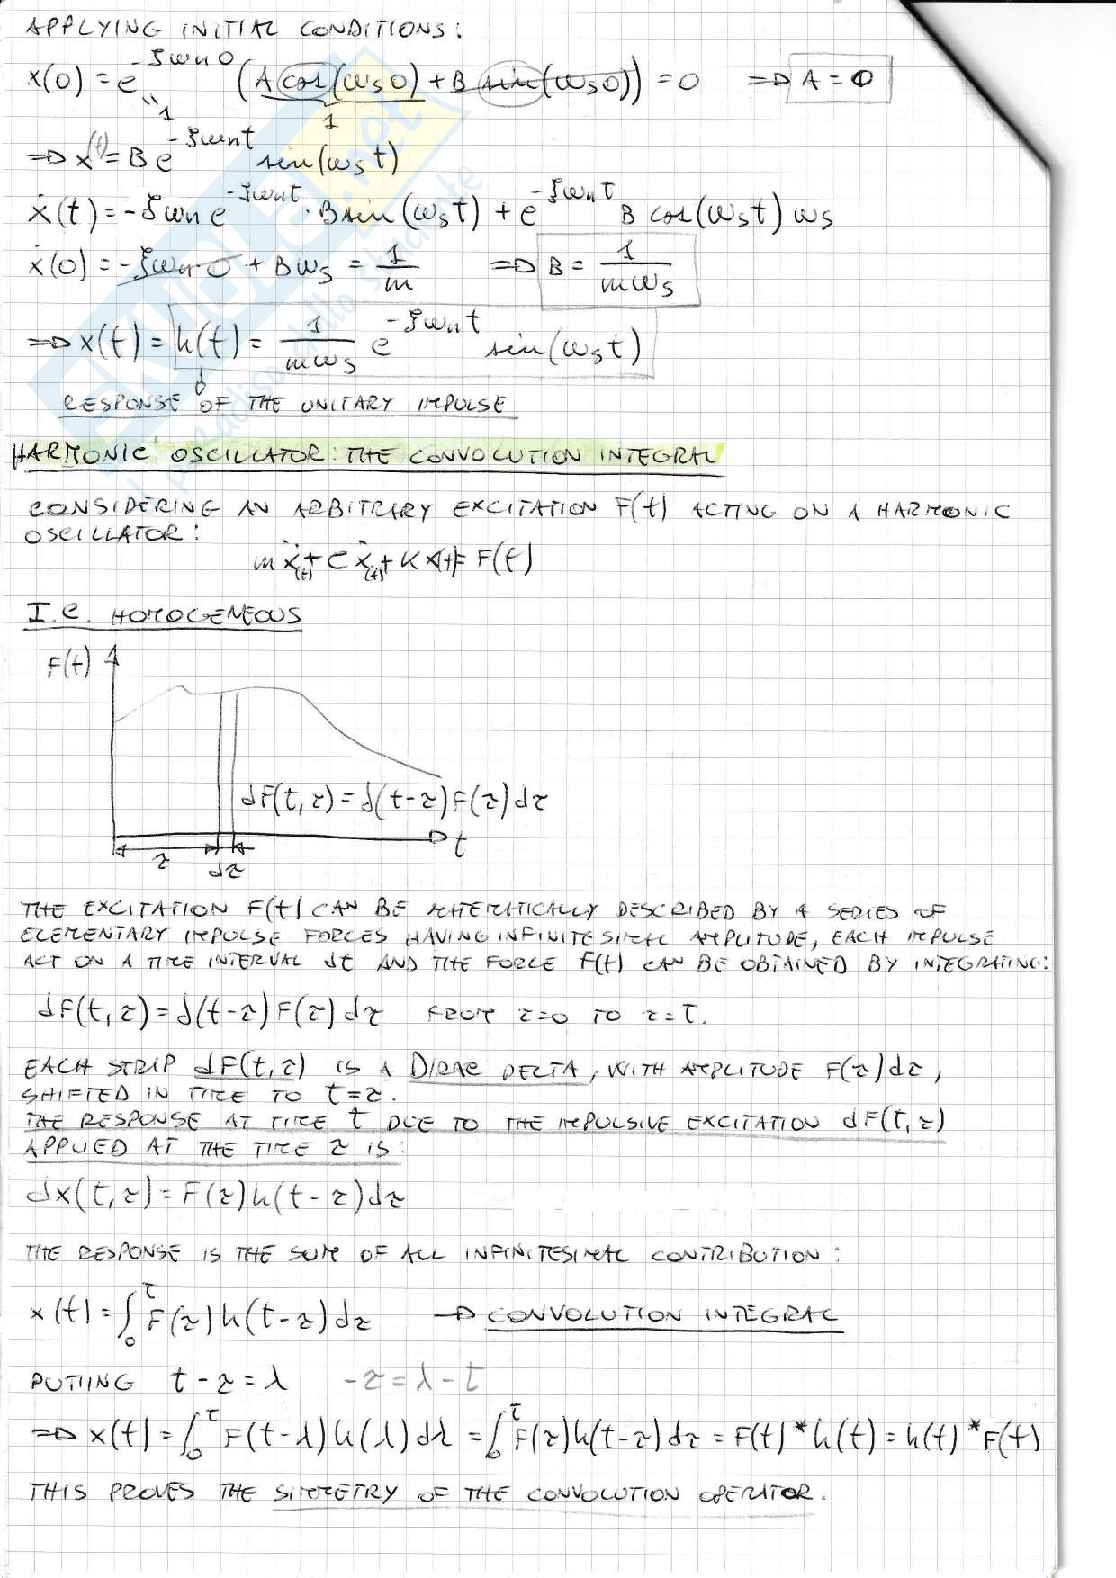 APPLYING INITIAL CONDITIONS:
x(0) = e^{-ζωn0} (A cos(ωs0) + B sin(ωs0)) = 0 ⇒ A = 0
1 1
⇒ x(t) = B e^{-ζωnt} sin(ωst)
ẋ(t) = -ζωn e^{-ζωnt} · B sin(ωst) + e^{-ζωnt} B cos(ωst) ωs
ẋ(0) = -ζωn 0 + Bωs = 1/m ⇒ B = 1/(mωs)
⇒ x(t) = h(t) = 1/(mωs) e^{-ζωnt} sin(ωst)
RESPONSE OF THE UNITARY IMPULSE
HARMONIC OSCILLATOR: THE CONVOLUTION INTEGRAL
CONSIDERING AN ARBITRARY EXCITATION F(t) ACTING ON A HARMONIC
OSCILLATOR:
mẍ(t) + cẋ(t) + Kx(t) = F(t)
I.C. HOMOGENEOUS
F(t)
dF(t,τ) = δ(t-τ)F(τ)dτ
t
τ
dτ
THE EXCITATION F(t) CAN BE MATEMATICALLY DESCRIBED BY A SERIES OF
ELEMENTARY IMPULSE FORCES HAVING INFINITESIMAL AMPLITUDE, EACH IMPULSE
ACT ON A TIME INTERVAL dt AND THE FORCE F(t) CAN BE OBTAINED BY INTEGRATING:
dF(t,τ) = δ(t-τ)F(τ)dτ FROM τ=0 TO τ=t.
EACH STRIP dF(t,τ) IS A DIRAC DELTA, WITH AMPLITUDE F(τ)dτ,
SHIFTED IN TIME TO t=τ.
THE RESPONSE AT TIME t DUE TO THE IMPULSIVE EXCITATION dF(t,τ)
APPLIED AT THE TIME τ IS:
dx(t,τ) = F(τ)h(t-τ)dτ
THE RESPONSE IS THE SUM OF ALL INFINITESIMAL CONTRIBUTION:
x(t) = ∫₀ᵗ F(τ)h(t-τ)dτ → CONVOLUTION INTEGRAL
PUTIING t-τ=λ -τ=λ-t
⇒ x(t) = ∫₀ᵗ F(t-λ)h(λ)dλ = ∫₀ᵗ F(τ)h(t-τ)dτ = F(t)*h(t) = h(t)*F(t)
THIS PROVES THE SIMMETRY OF THE CONVOLUTION OPERATOR.